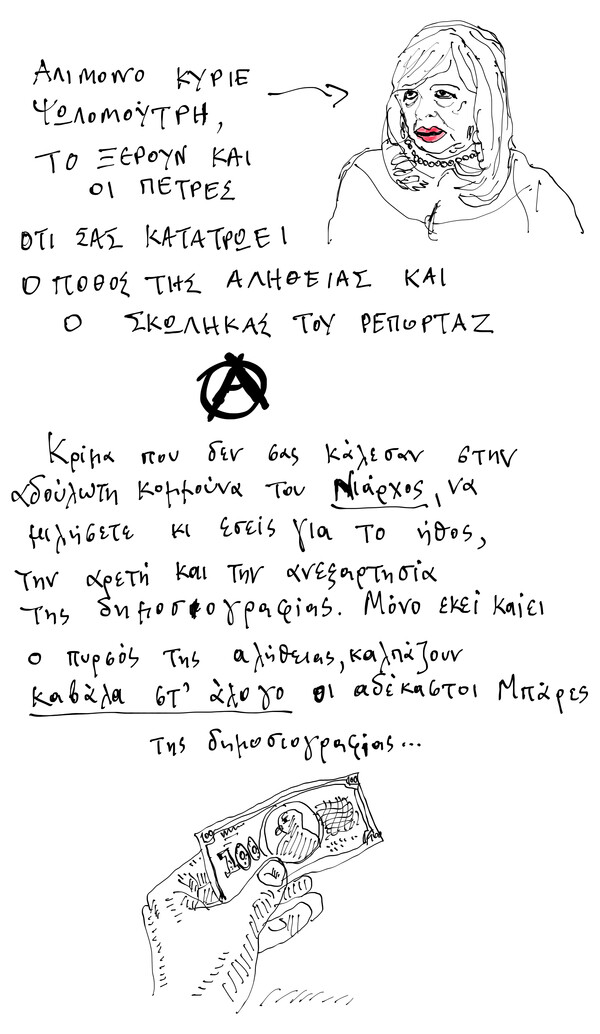 ΑΛΙΜΟΝΟ ΚΥΡΙΕ
ΨΩΛΟΜΟΎΤΡΗ,
ΤΟ ΞΕΡΟΥΝ ΚΑΙ
ΟΙ ΠΕΤΡΕΣ
ΟΤΙ ΣΑΣ ΚΑΤΑΤΡΩΕΙ
Ο ΠΟΘΟΣ ΤΗΣ ΑΛΗΘΕΙΑΣ ΚΑΙ
Ο ΣΚΩΛΗΚΑΣ ΤΟΥ ΡΕΠΟΡΤΑΖ
Κρίμα που δεν σας κάλεσαν στην
αδούλωτη κομμούνα του Νιάρχος, να
μιλήσετε κι εσείς για το ήθος,
την αρετή και την ανεξαρτησία
της δημοσιογραφίας. Μόνο εκεί καίει
ο πυρσός της αλήθειας, καλπάζουν
καβάλα στ' άλογο οι αδέκαστοι Μπάρες
της δημοσιογραφίας...
100
100